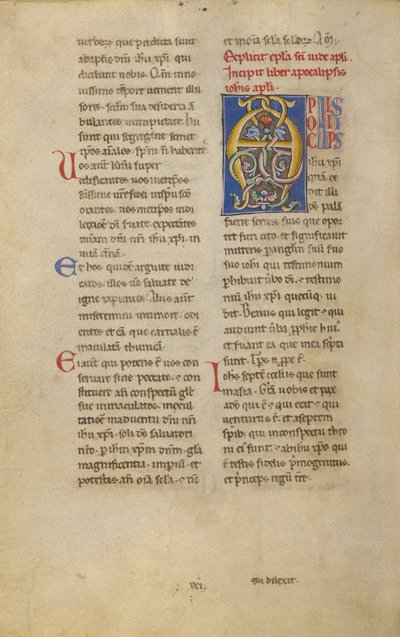 verborẹ que predicta sunt
abaplis dni ihu xpi qui
dicebant nobis. Qm in no
uissimo tēpore uenient illu
sores. scdm sua desideria ā
bulantes inimpietatib.
sunt qui segregant semet
ipsos aīales. spm ñ habentes.
Uos aūt kmi super
edificantes uos metipsos
ssime ure fidei inspu sco
orantes. uos metipsos indi
lectione di seruate. expectantes
miam dni nri ihu xpi. in
uitā etnā.
Et hos quidē arguite iudi
catos. illos uo saluate de
igne rapientes. Aliis aūt
miseremini intimore. odi
entes et eā que carnalis ē
maculatā tunicā.
Ei aūt qui potens ē uos con
seruare sine peccato. 7 con
stituere añ conspectū glę
sue inmaculatos. inexul
tatione inaduentu dni nri
ihu xpi. soli do saluatori
nro. p ihm xpm dnm. gla
magnificentia. impiū. et
potestas añ oīa scla. 7 nc
et inoīa scla sclorꝝ. Am.
Explicit epla sci iude apli.
Incipit liber apocalipsis
iohis apli.
APOCALIPSIS
ihu xpi
quā de
dit illi
ds palā
facere seruis suis que opor
tet fieri cito. et significauit
mittens p anglm suū seruo
suo iohi qui testimonium
phibuit ubo di. 7 testimo
niū ihu xpi quecūq; ui
dit. Beatus qui legit 7 qui
audiunt uba pphie hui.
et seruant ea que inea scripta
sunt. Tps n ppe ē.
Iohs septē ecclesiis que sunt
inasia. Gra uobis et pax
abeo qui ē 7 qui erat 7 qui
uenturus ē. et aseptem
spib; qui inconspectu thro
ni ei sunt. 7 abihu xpo qui
ē testis fidelis pmogenitus.
et pnceps regū tre.
xxi.
qui dilexit.